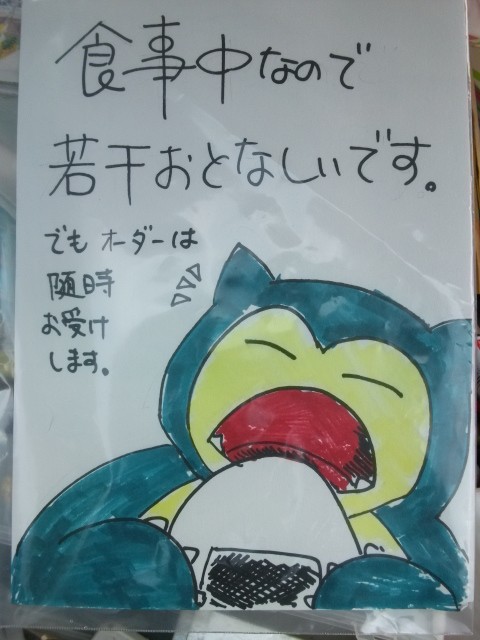 食事中なので
若干おとなしいです。
でも オーダーは
随時
お受け
します。